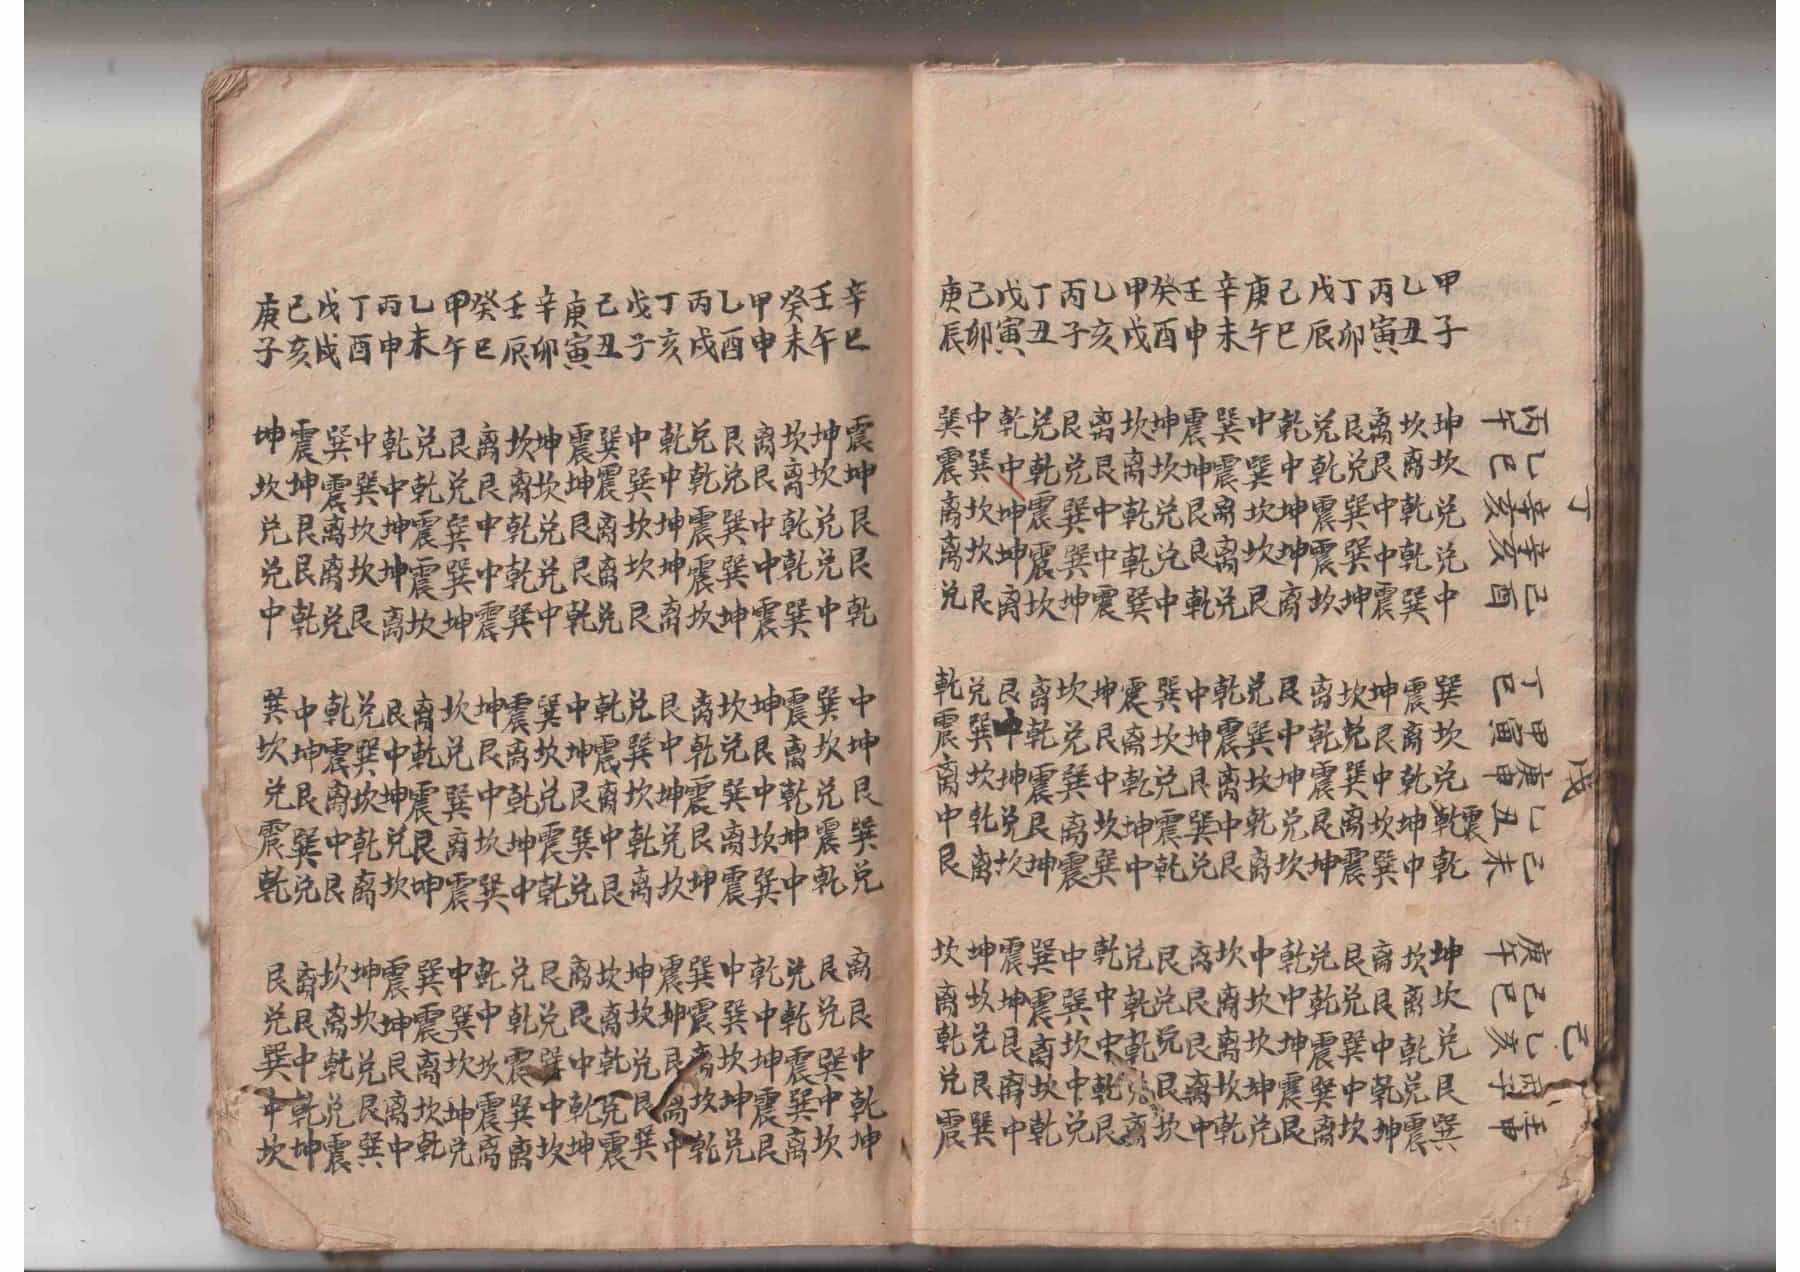 丁 戊 己
丙午 乙巳 辛亥 辛亥 己酉 丁巳 甲寅 庚申 乙丑 己未 庚午 己巳 乙亥 丙子 壬申
甲子 坤坎兑兑中 巽坎兑震乾 坤坎兑艮巽
乙丑 坎离乾乾巽 震离乾坤中 坎离乾兑震
丙寅 离艮中中震 坤艮中坎巽 离艮中乾坤
丁卯 艮兑巽巽坤 坎兑巽离震 艮兑巽中坎
戊辰 兑乾震震坎 离乾震艮坤 兑乾震巽离
己巳 乾中坤坤离 艮中坤兑坎 乾中坤震艮
庚午 中巽坎坎艮 兑巽坎乾离 中坎坎坤兑
辛未 巽震离离兑 乾震离中艮 坎离离坎乾
壬申 震坤艮艮乾 中坤艮巽兑 离艮艮离中
癸酉 坤坎兑兑中 巽坎兑震乾 艮兑兑艮坎
甲戌 坎离乾乾巽 震离乾坤中 兑乾乾兑离
乙亥 离艮中中震 坤艮中坎巽 乾中中乾艮
丙子 艮兑巽巽坤 坎兑巽离震 中巽坎中兑
丁丑 兑乾震震坎 离乾震艮坤 巽震离坎乾
戊寅 乾中坤坤离 艮中坤兑坎 震坤艮离中
己卯 中巽坎坎艮 兑巽坎乾离 坤坎兑艮巽
庚辰 巽震离离兑 乾震离中艮 坎离乾兑震
辛巳 震坤艮艮乾 中坤艮巽兑 离艮中乾坤
壬午 坤坎兑兑中 巽坎兑震乾 艮兑巽中坎
癸未 坎离乾乾巽 震离乾坤中 兑乾震巽离
甲申 离艮中中震 坤艮中坎巽 乾中坤震艮
乙酉 艮兑巽巽坤 坎兑巽离震 中巽坎坤兑
丙戌 兑乾震震坎 离乾震艮坤 巽震离坎乾
丁亥 乾中坤坤离 艮中坤兑坎 震坤艮离中
戊子 中巽坎坎艮 兑巽坎乾离 坤坎兑艮巽
己丑 巽震离离兑 乾震离中艮 坎离乾兑震
庚寅 震坤艮艮乾 中坤艮巽兑 离艮中乾坤
辛卯 坤坎兑兑中 巽坎兑震乾 艮兑巽中坎
壬辰 坎离乾乾巽 震离乾坤中 兑乾震巽离
癸巳 离艮中中震 坤艮中坎巽 乾中坎震离
甲午 艮兑巽巽坤 坎兑巽离震 中巽坎坤兑
乙未 兑乾震震坎 离乾震艮坤 巽震离坎乾
丙申 乾中坤坤离 艮中坤兑坎 震坤艮离中
丁酉 中巽坎坎艮 兑巽坎乾离 坤坎兑艮巽
戊戌 巽震离离兑 乾震离中艮 坎离乾兑震
己亥 震坤艮艮乾 中坤艮巽兑 离艮中乾坤
庚子 坤坎兑兑中 巽坎兑震乾 艮兑巽中坎